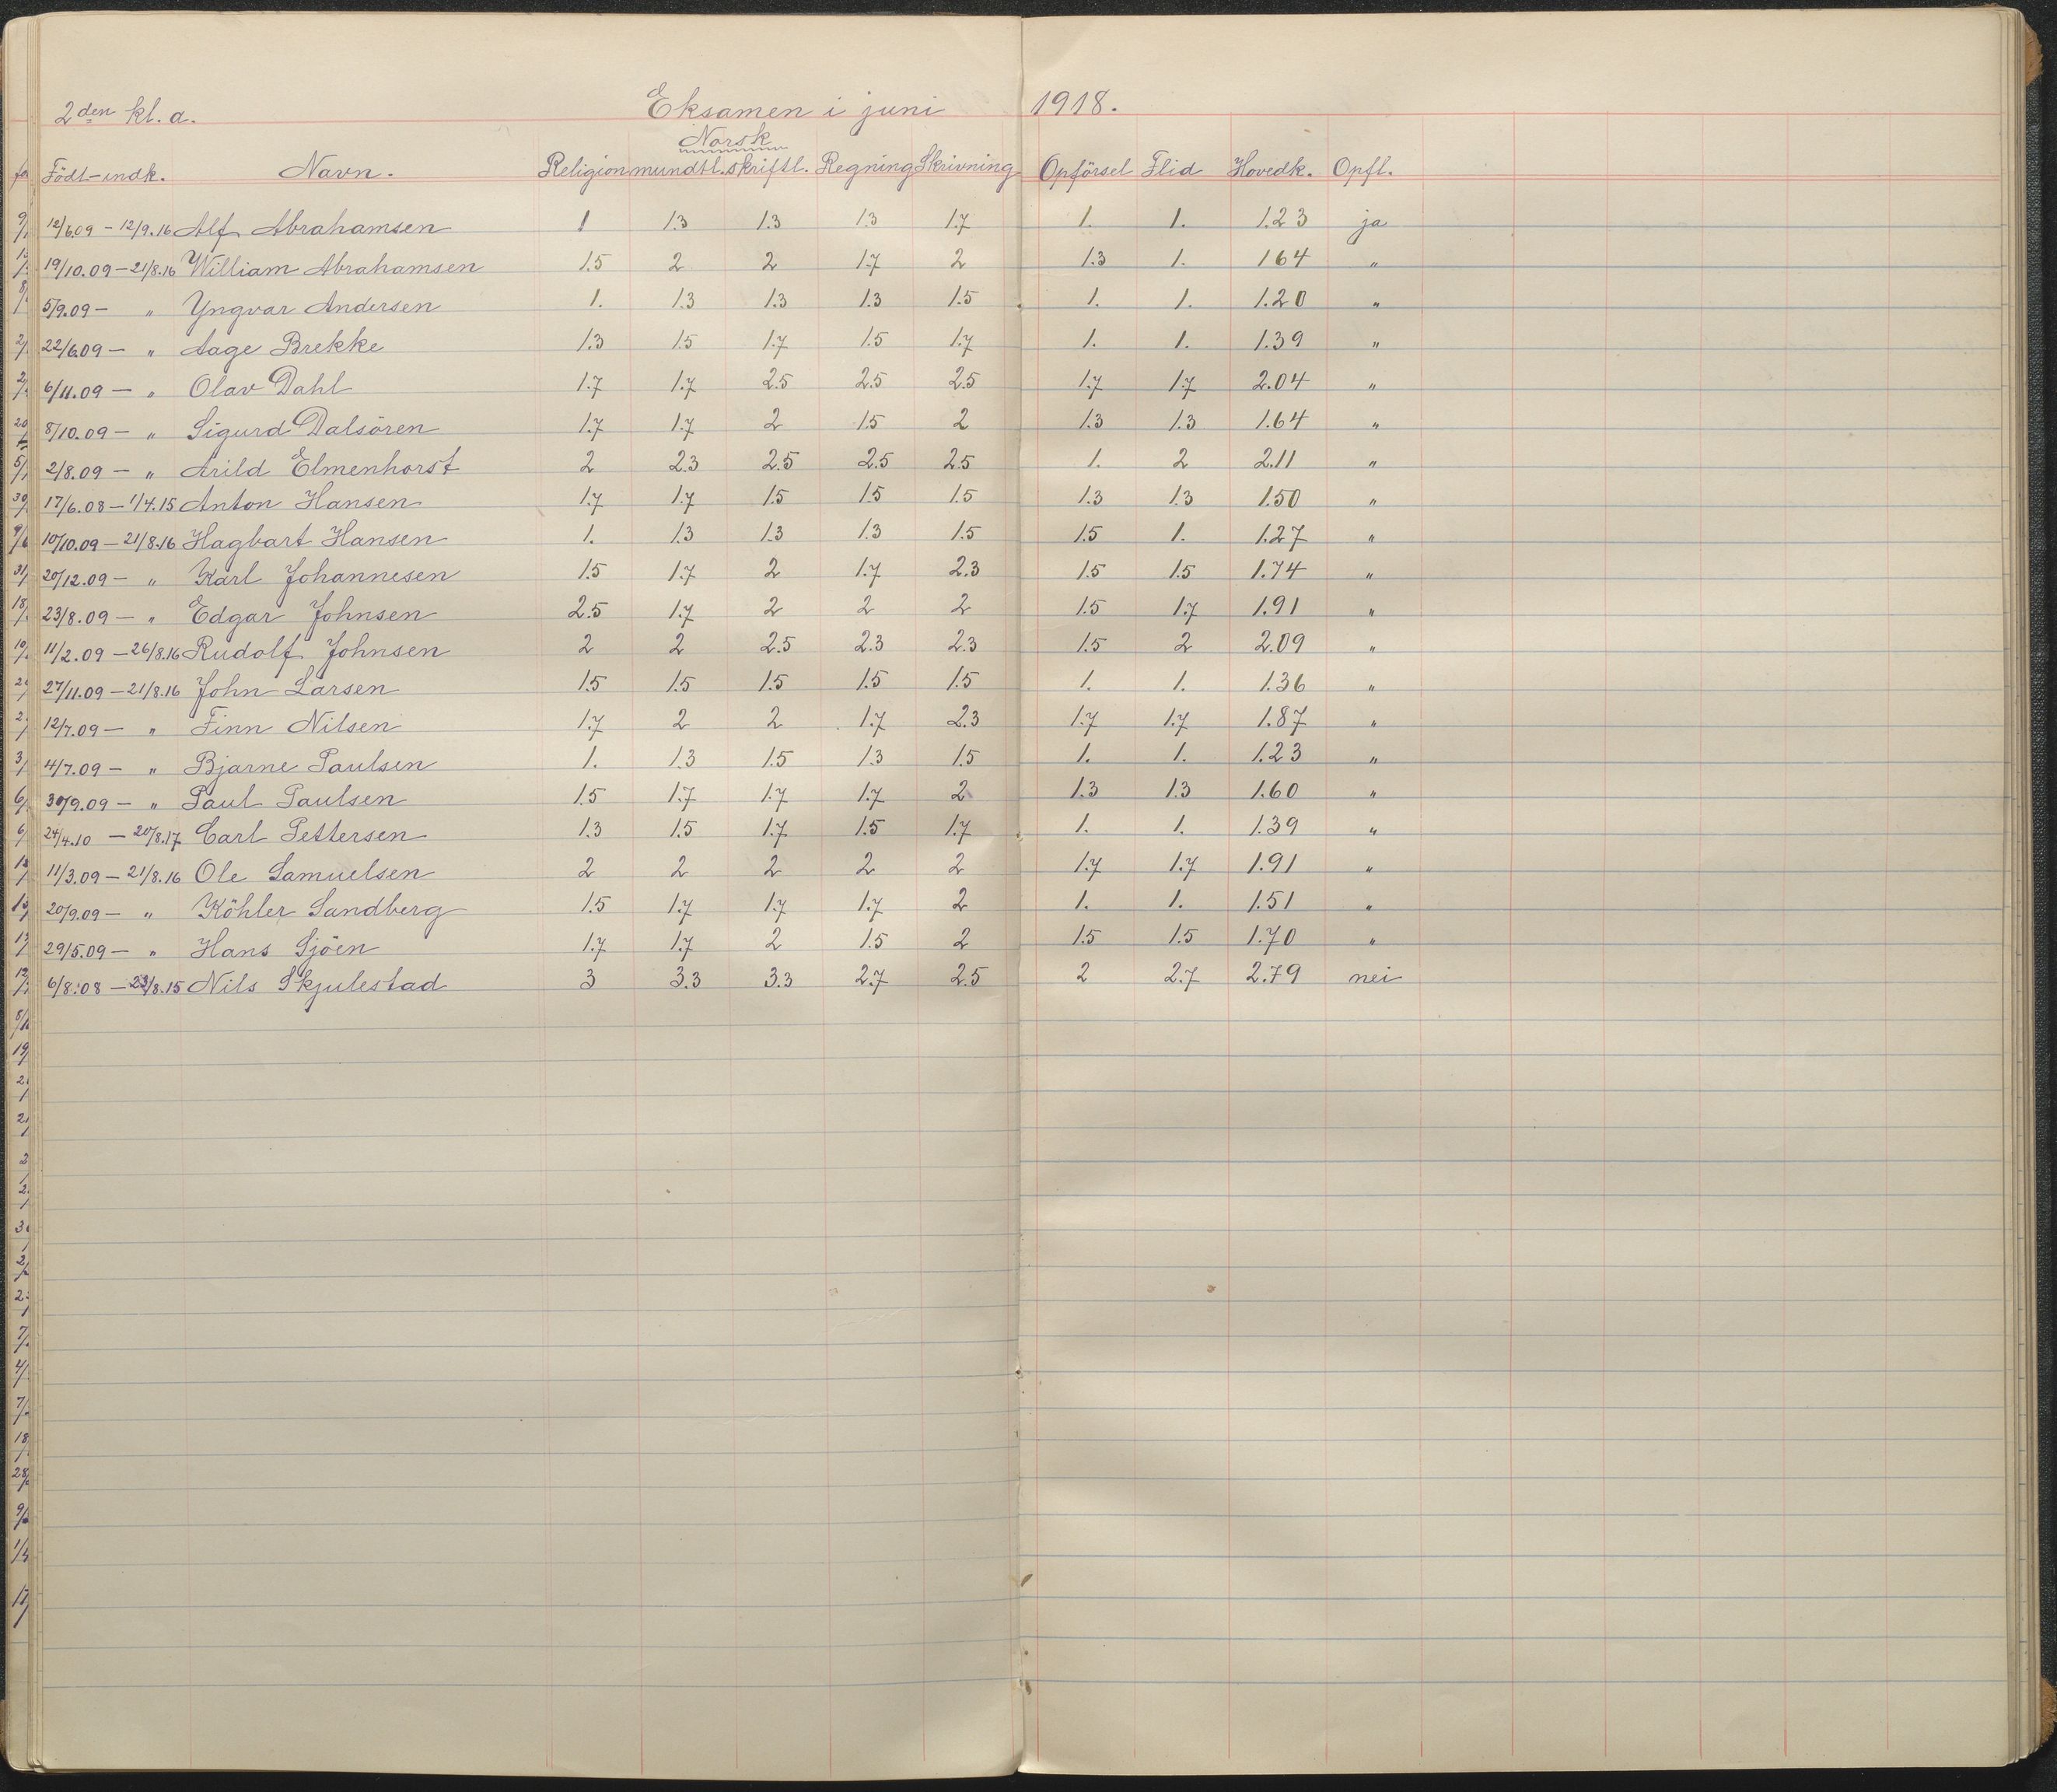 2den kl. a. Eksamen i juni 1918.
Norsk
Födt-indk. Navn. Religion mundtl. skriftl. Regning Skrivning Opförsel Flid Hovedk. Opfl.
12/6.09 - 12/9.16 Alf Abrahamsen 1 1.3 1.3 1.3 1.7 1. 1. 1.23 ja
19/10.09 - 21/8.16 William Abrahamsen 1.5 2 2 1.7 2 1.3 1. 1.64 "
5/9.09 - " Yngvar Andersen 1. 1.3 1.3 1.3 1.5 1. 1. 1.20 "
22/6.09 - " Aage Brekke 1.3 1.5 1.7 1.5 1.7 1. 1. 1.39 "
6/11.09 - " Olav Dahl 1.7 1.7 2.5 2.5 2.5 1.7 1.7 2.04 "
8/10.09 - " Sigurd Dalsören 1.7 1.7 2 1.5 2 1.3 1.3 1.64 "
2/8.09 - " Arild Elmenhorst 2 2.3 2.5 2.5 2.5 1. 2 2.11 "
17/6.08 - 1/4.15 Anton Hansen 1.7 1.7 1.5 1.5 1.5 1.3 1.3 1.50 "
10/10.09 - 21/8.16 Hagbart Hansen 1. 1.3 1.3 1.3 1.5 1.5 1. 1.27 "
20/12.09 - " Karl Johannesen 1.5 1.7 2 1.7 2.3 1.5 1.5 1.74 "
23/8.09 - " Edgar Johnsen 2.5 1.7 2 2 2 1.5 1.7 1.91 "
11/2.09 - 26/8.16 Rudolf Johnsen 2 2 2.5 2.3 2.3 1.5 2 2.09 "
27/11.09 - 21/8.16 John Larsen 1.5 1.5 1.5 1.5 1.5 1. 1. 1.36 "
12/7.09 - " Finn Nilsen 1.7 2 2 1.7 2.3 1.7 1.7 1.87 "
4/7.09 - " Bjarne Paulsen 1. 1.3 1.5 1.3 1.5 1. 1. 1.23 "
30/9.09 - " Paul Paulsen 1.5 1.7 1.7 1.7 2 1.3 1.3 1.60 "
24/4.10 - 20/8.17 Carl Pettersen 1.3 1.5 1.7 1.5 1.7 1. 1. 1.39 "
11/3.09 - 21/8.16 Ole Samuelsen 2 2 2 2 2 1.7 1.7 1.91 "
20/9.09 - " Köhler Sandberg 1.5 1.7 1.7 1.7 2 1. 1. 1.51 "
29/5.09 - " Hans Sjöen 1.7 1.7 2 1.5 2 1.5 1.5 1.70 "
6/8.08 - 23/8.15 Nils Skjulestad 3 3.3 3.3 2.7 2.5 2 2.7 2.79 nei